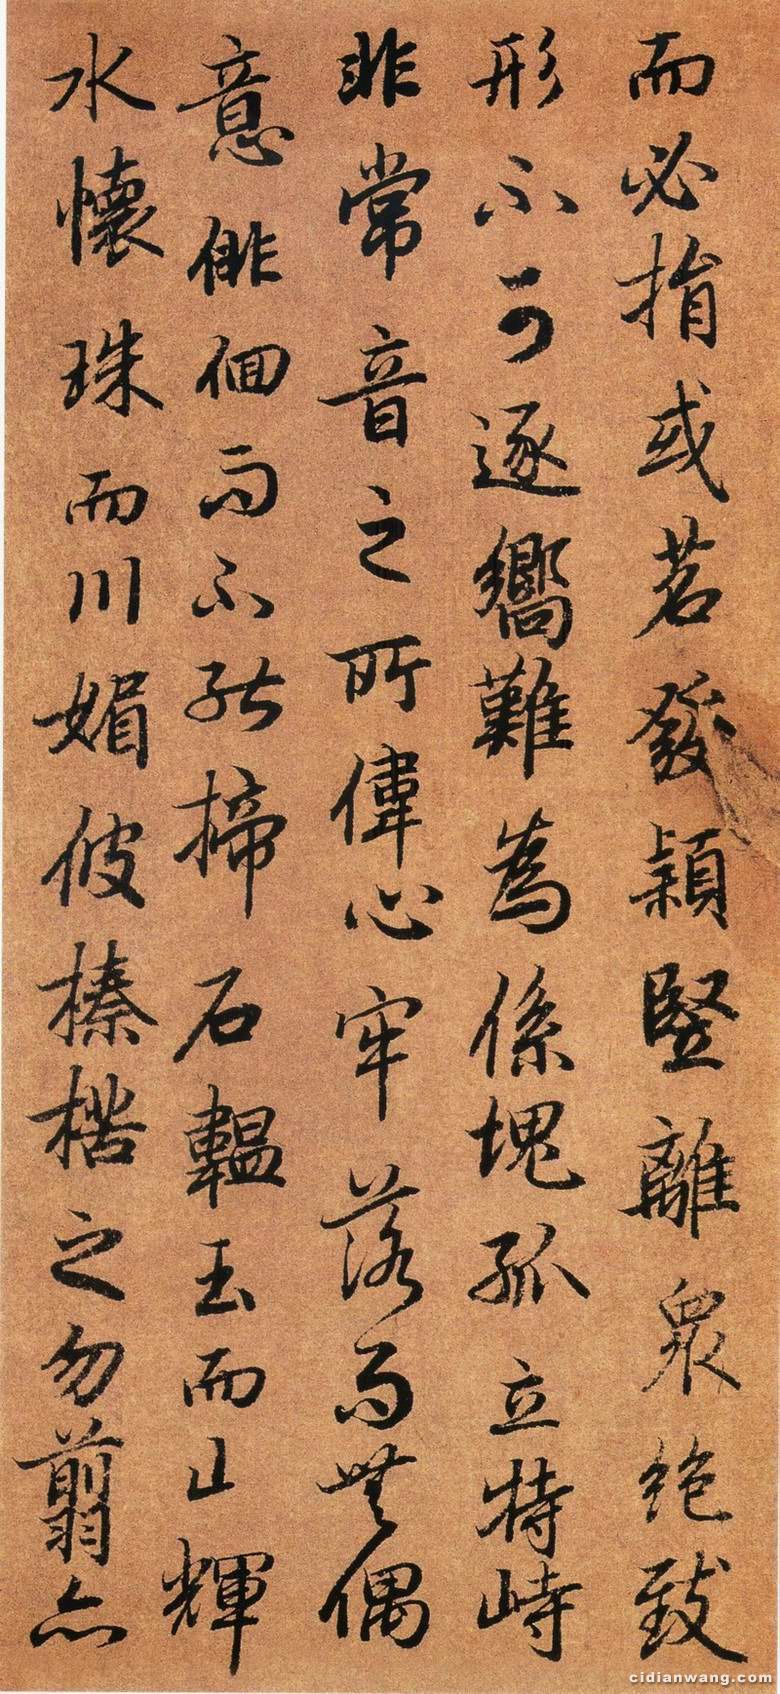 而必捐或苕發穎豎離衆絕致
形不可逐嚮難為係塊孤立特峙
非常音之所偉心牢落而無偶
意俳佪而不能揥石韞玉而山輝
水懷珠而川媚彼榛楛之勿翦亦
cidianwang.com